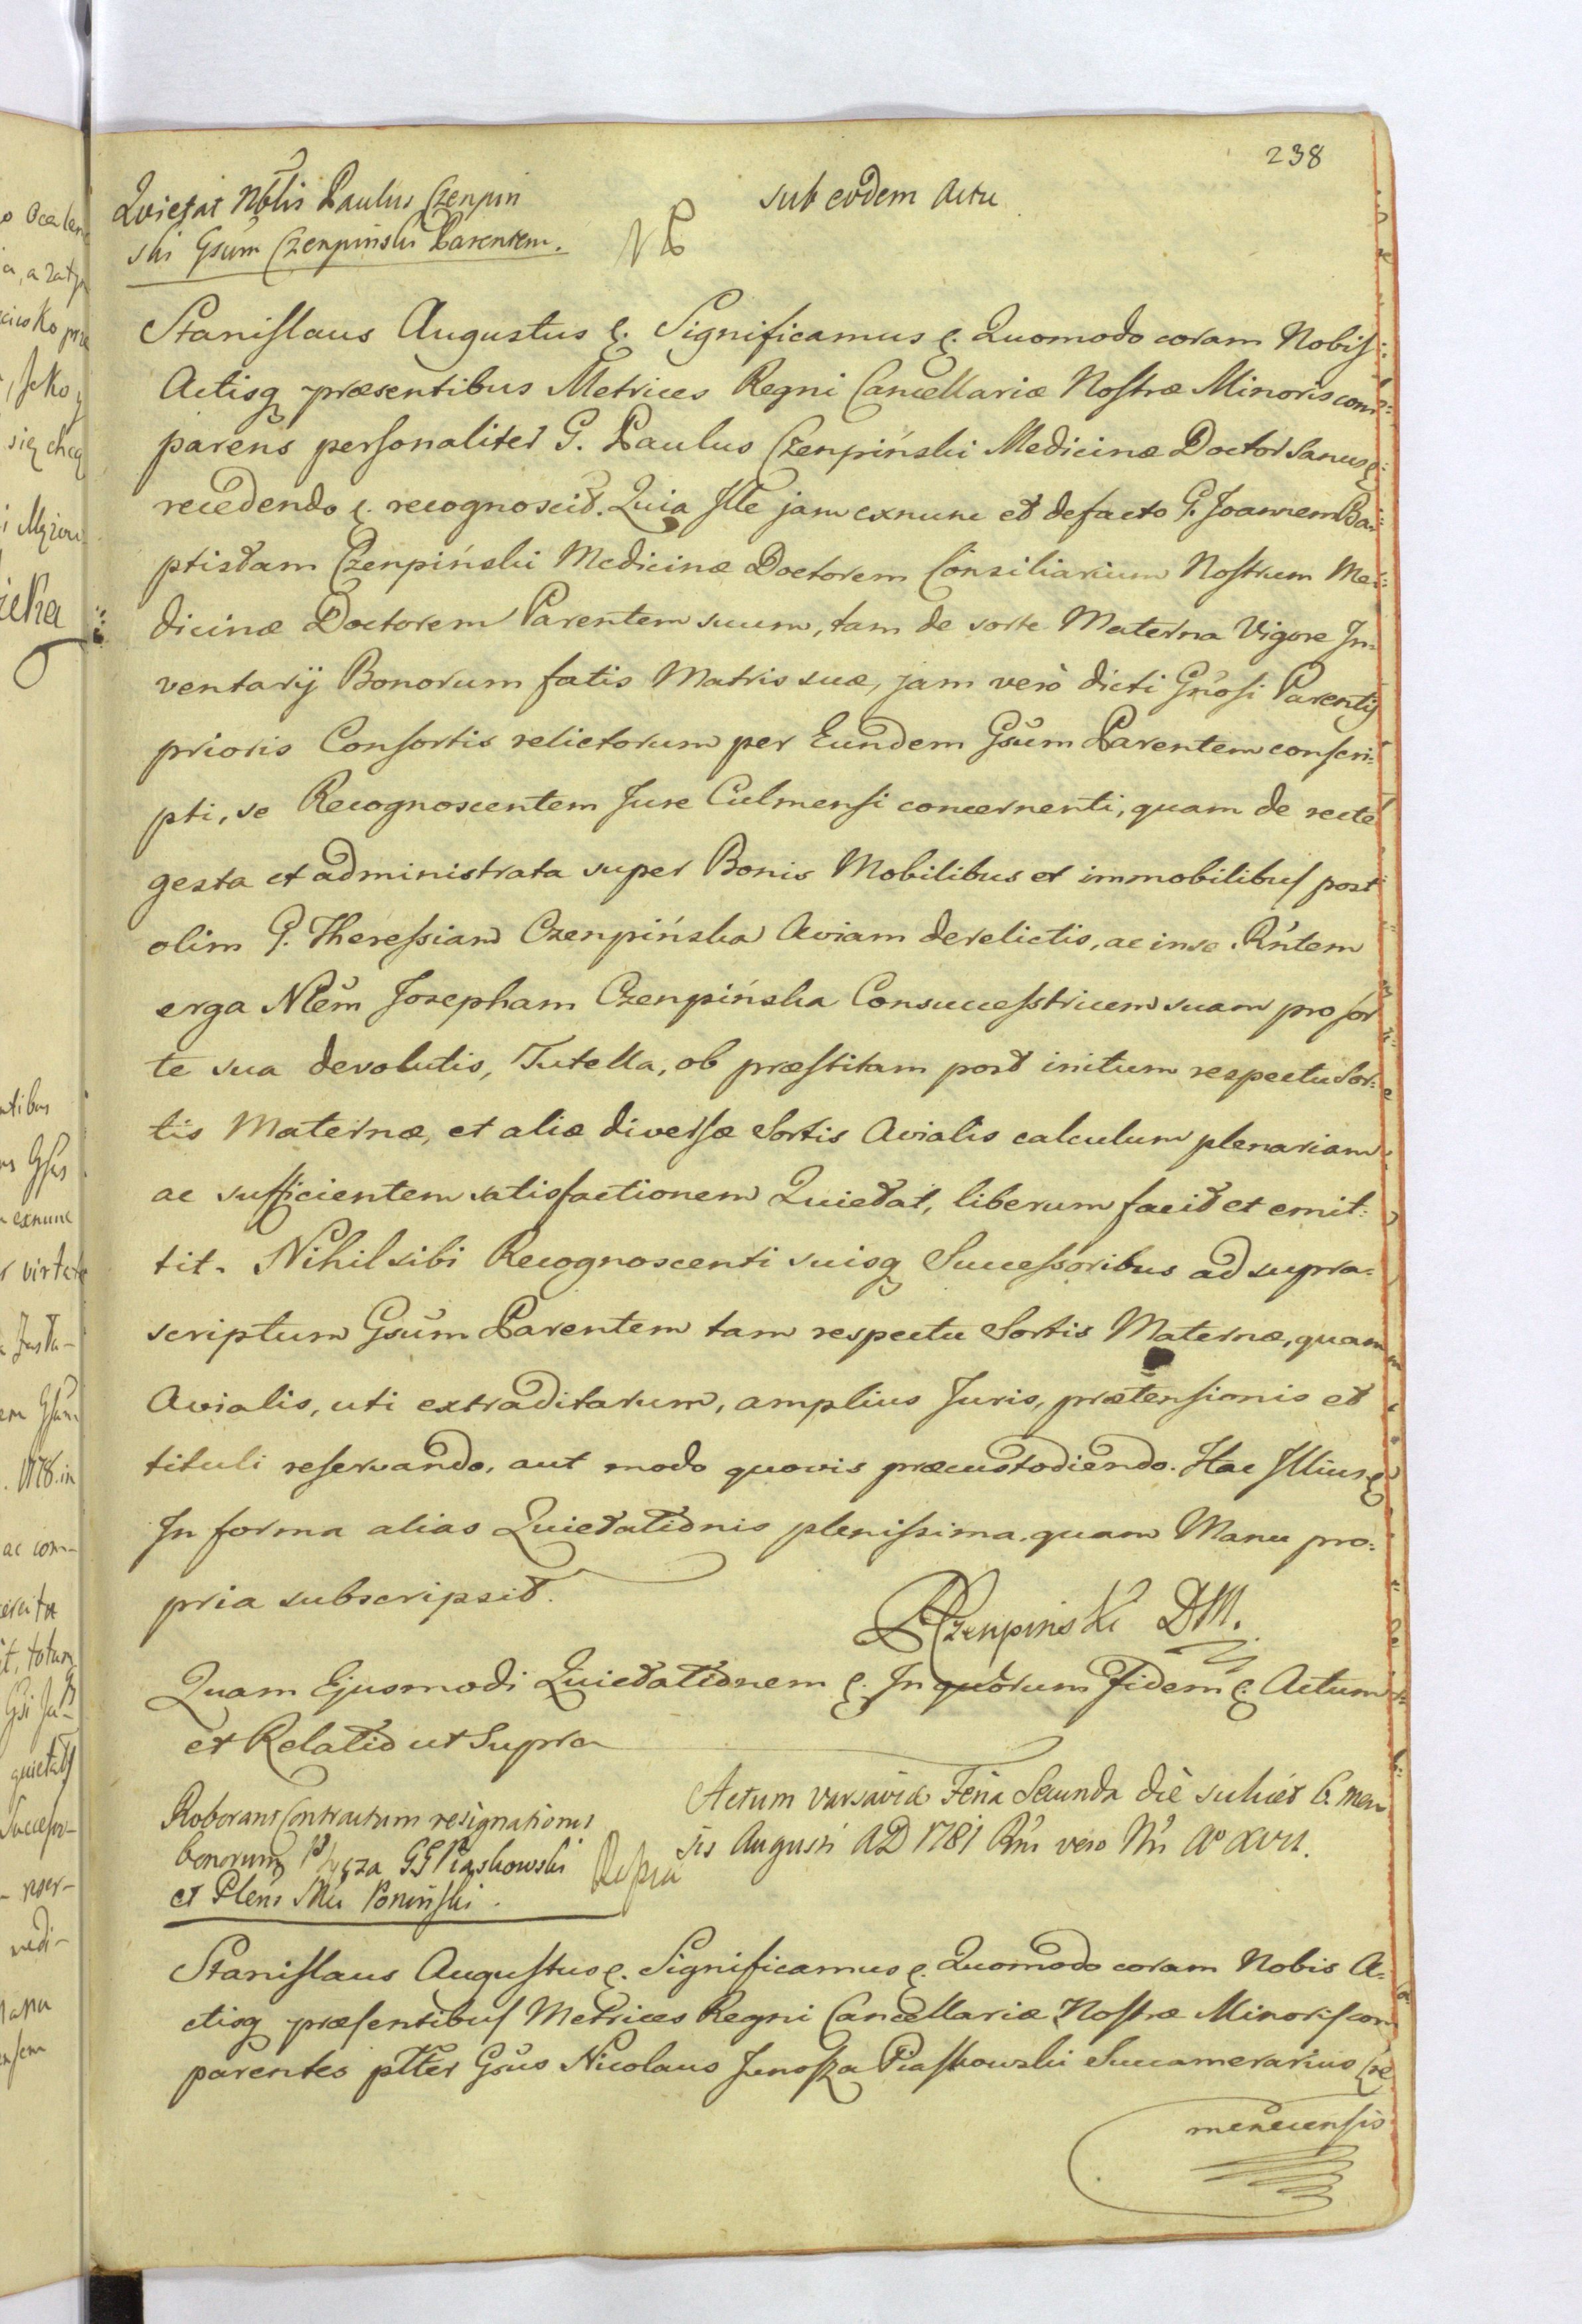 238
Quietat Nblis Paulus Czenpin
ski Gsum Czenpinski Parentem.
sub eodem Actu
Stanislaus Augustus &. Significamus &. Quomodo coram Nobis
Actisq præsentibus Metrices Regni Cancellariæ Nostræ Minoris com=
parens personaliter G. Paulus Czenpiński Medicinæ Doctor Sanus &.
recedendo &. recognoscit. Quia Ille jam exnunc et defacto G. Joannem Ba=
ptistam Czenpiński Medicinæ Doctorem Consiliarium Nostrum Me=
dicinæ Doctorem Parentem suum, tam de sorte Materna Vigore In=
ventarij Bonorum fatis Matris suæ, jam verò dicti Gnosi Parentis
prioris Consortis relictorum per Eundem Gsum Parentem conscri=
pti, se Recognoscentem Jure Culmensi concernenti, quam de recte
gesta et administrata super Bonis Mobilibus et immobilibus post
olim G. Theressiam Czenpińska Aviam derelictis, ac in se Rntem
erga Nlem Josepham Czenpińska Consuccesstricem suam pro sor
te sua devolutis, Tutella, ob præstitam post initum respectu Sor=
tis Maternæ, et aliæ diversæ Sortis Avialis calculum plenariam
ac sufficientem satisfactionem Quietat, liberum facit et emit=
tit. Nihil sibi Recognoscenti suisq Successoribus ad supra=
scriptum Gsum Parentem tam respectu Sortis Maternæ, quam
Avialis, uti extraditarum, amplius Juris, prætensionis et
tituli reservando, aut modo quovis præcustodiendo. Hac Illius &
In forma alias Quietationis plenissima. quam Manu pro=
pria subscripsit.
PCzenpinski DM.
Quam Ejusmodi Quietationem &. In quorum Fidem &. Actum
et Relatio ut Supra
Roborant Contractum resignationis
bonorum GG Piaskowski
et Plens Mu Poninski.
Actum Varsaviæ Feria Secunda die scilicet 6. men
sis Augusti AD 1781 Rni vero Nri Ao XVII.
Stanislaus Augustus &. Significamus &. Quomodo coram Nobis A=
ctisq præsentibus Metrices Regni Cancellariæ Nostræ Minoris com
parentes pltter Gsus Nicolaus Junosza Piaskowski Succamerarius Cre
menecensis